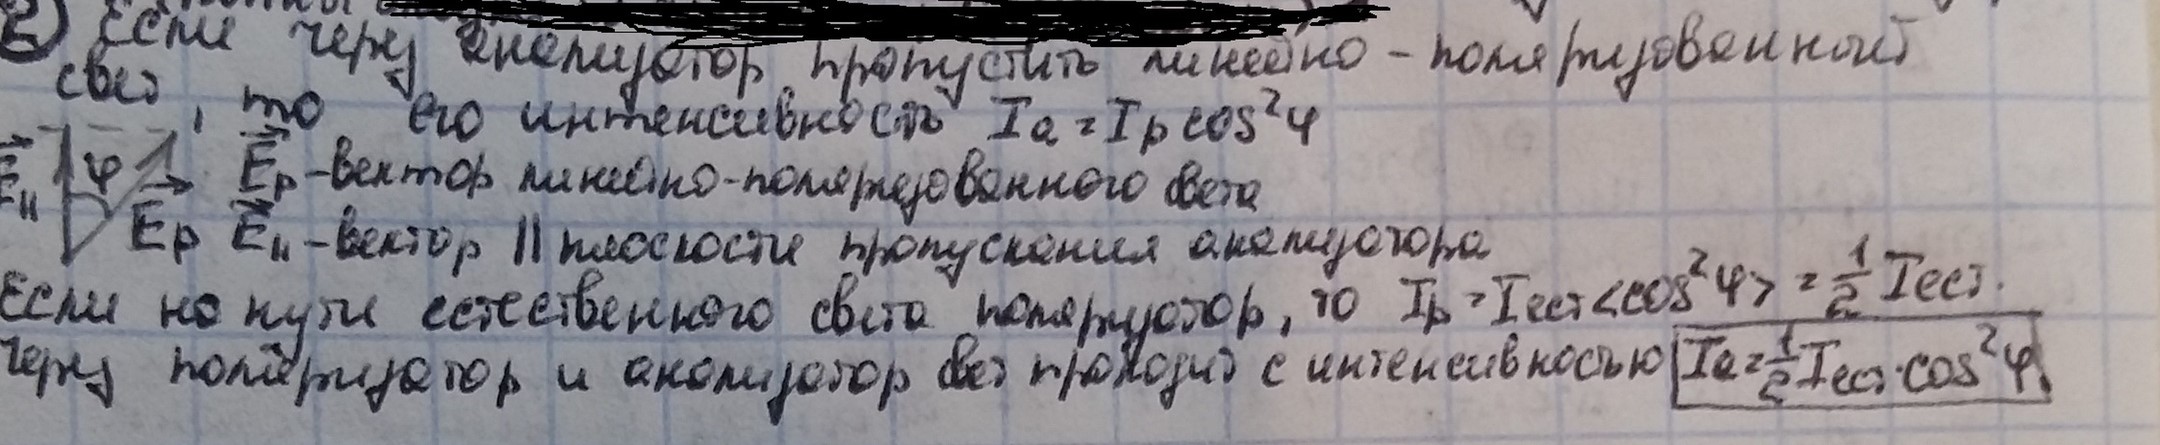 2) Если через анализатор пропустить линейно-поляризованный
свет, то его интенсивность Iа = Iр cos²φ
E⃗॥ φ E⃗р E⃗р - вектор линейно-поляризованного света
E⃗॥ - вектор || плоскости пропускания анализатора
Если на пути естественного света поляризатор, то Iр = Iест <cos²φ> = 1/2 Iест.
Через поляризатор и анализатор свет проходит с интенсивностью Iа = 1/2 Iест · cos²φ